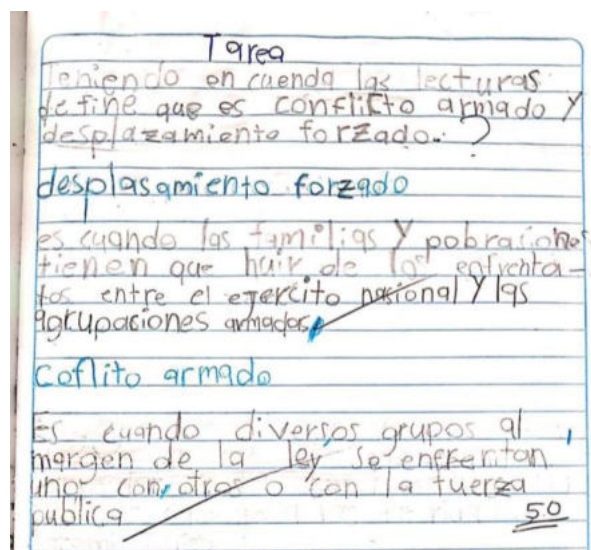 Tarea
Teniendo en cuenda las lecturas
define que es conflicto armado y
desplazamiento forzado.?
desplasamiento forzado
es cuando las familias y pobraciones
tienen que huir de los enfrenta-
tos entre el ejercito nasional y las
agrupasiones armadas
Coflito armado
Es cuando diversos grupos al
margen de la ley se enfrentan
uno con otros o con la fuerza
publica
5.0